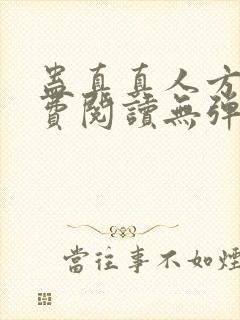 蛊真真人方
費閱讀無彈
當往事不如煙